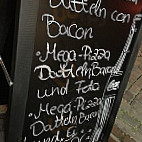 Datteln con
Bacon
• Mega-Pizza
Datteln, Bacon
und Feta
• Mega-Pizza
Datteln, Bacon
und